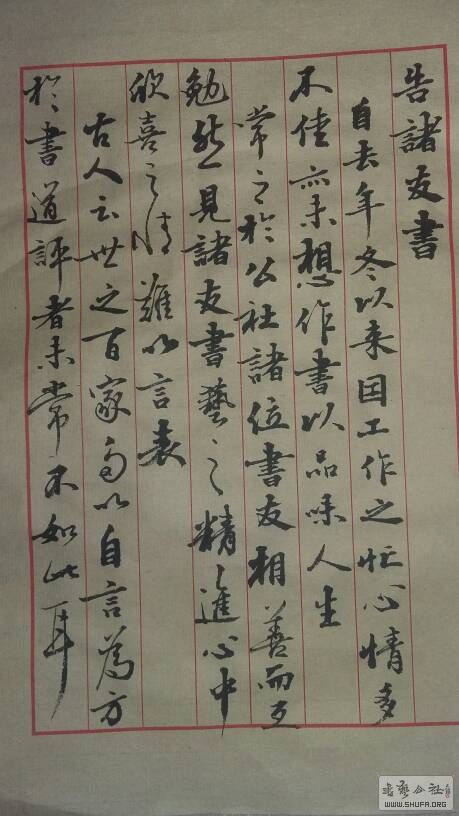 告諸友書
自去年冬以来因工作之忙心情多
不佳亦未想作書以品味人生
常之於公社諸位書友相善而互
勉然一見諸友書藝之精進心中
欣喜之情難以言表
古人云世之百家多以自言為方
於書道評者未嘗不如此耳
書藝公社
WWW.SHUFA.ORG